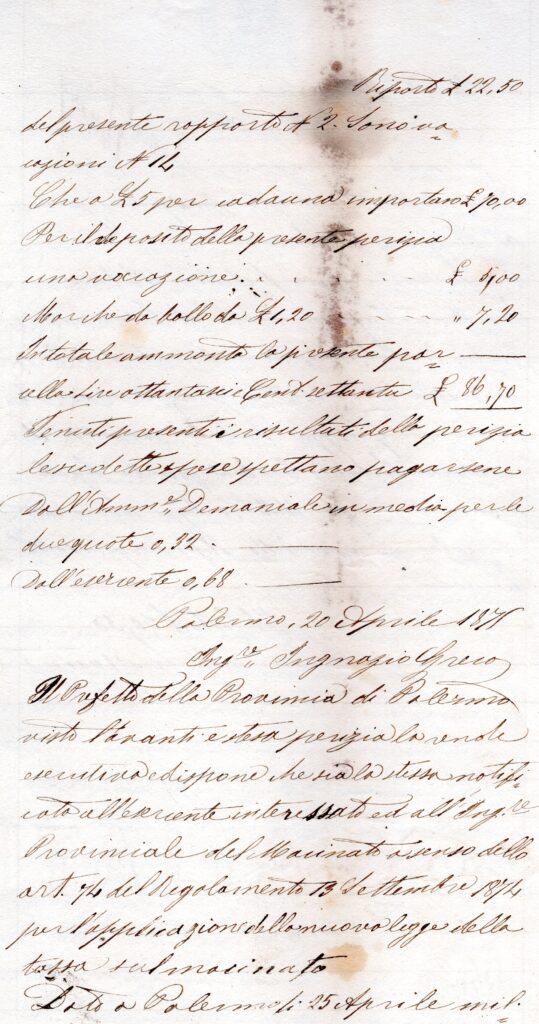 Riporto £ 22,50
del presente rapporto N 2. Sono va
cazioni N 14
Che a £ 5 per cadauna importano £ 70,00
Per il deposito della presente perizia
una vacazione . . . . . £ 5,00
Marche da bollo da £ 1,20 - - - - " 7,20
In totale ammonta la presente par-
cella lire ottantasei Cent. settanta £ 86,70
Tenuti presenti i risultati della perizia
le sudette spese spettano pagarsene
Dall'Amm.e Demaniale in media per le
due quote 0,32.
Dall'esercente 0,68.
Palermo, 20 Aprile
Ing.re Ingnazio Greco
Il Prefetto della Provincia di Palermo
visto l'avanti estesa perizia la rende
esecutiva e dispone che sia la stessa notifi
cata all'esercente interessato ed all'Ing.re
Provinciale del Macinato a senso dello
art. 74 del Regolamento 13 Settembre 1874
per l'applicazione della nuova legge della
tassa sul macinato
Dato a Palermo li 25 Aprile mil-